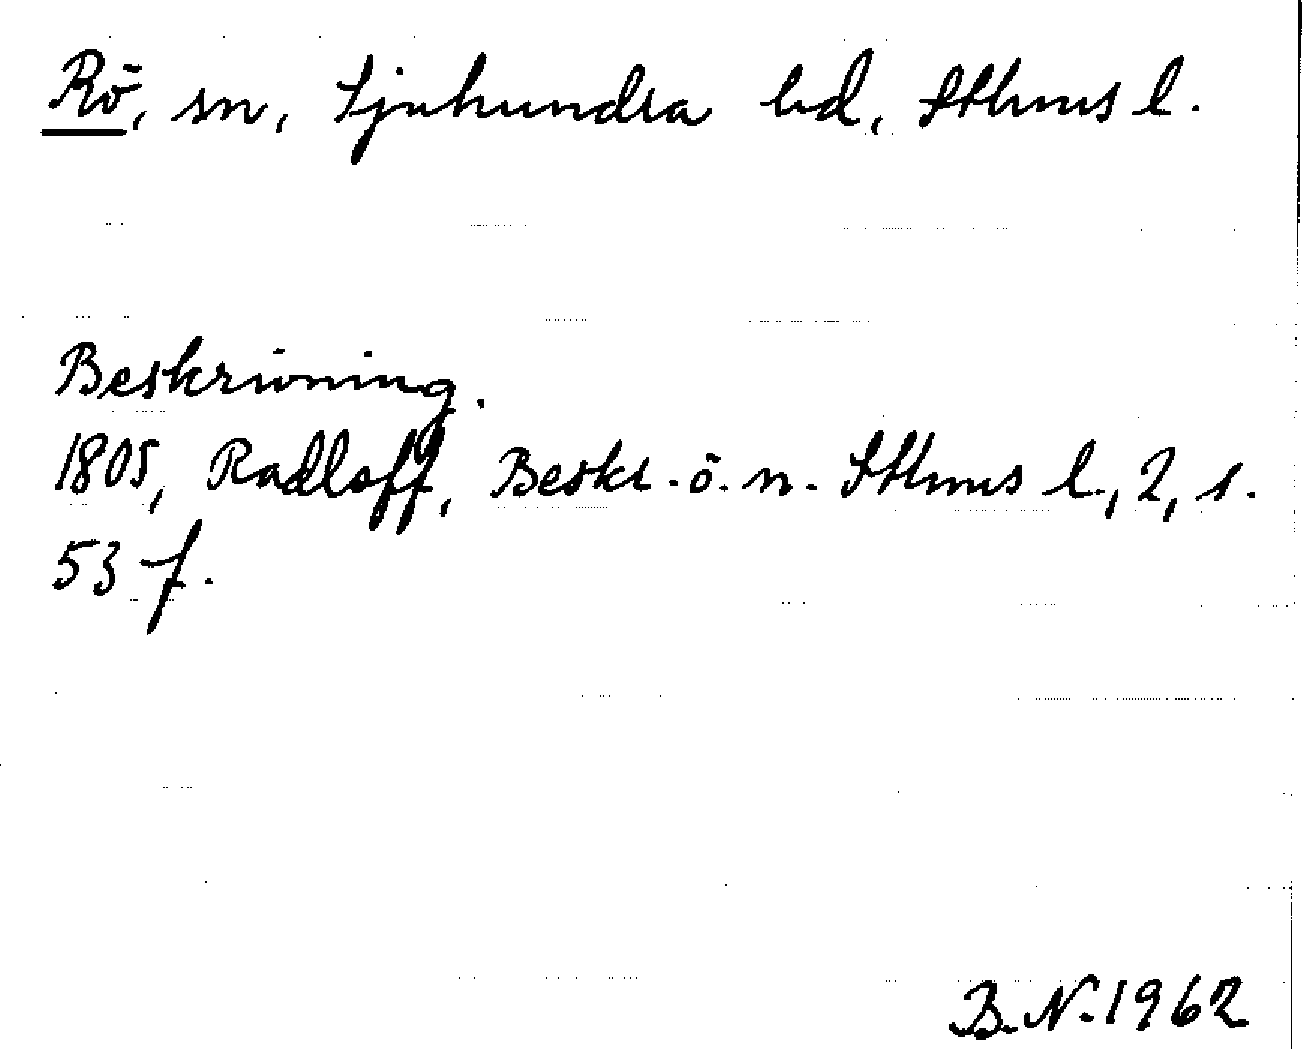 Rö, sn, Sjuhundra hd, Sthms l.
Beskrivning.
1805, Radloff, Beskr. ö. n. Sthms l., 2, s.
53 f.
B.N. 1962